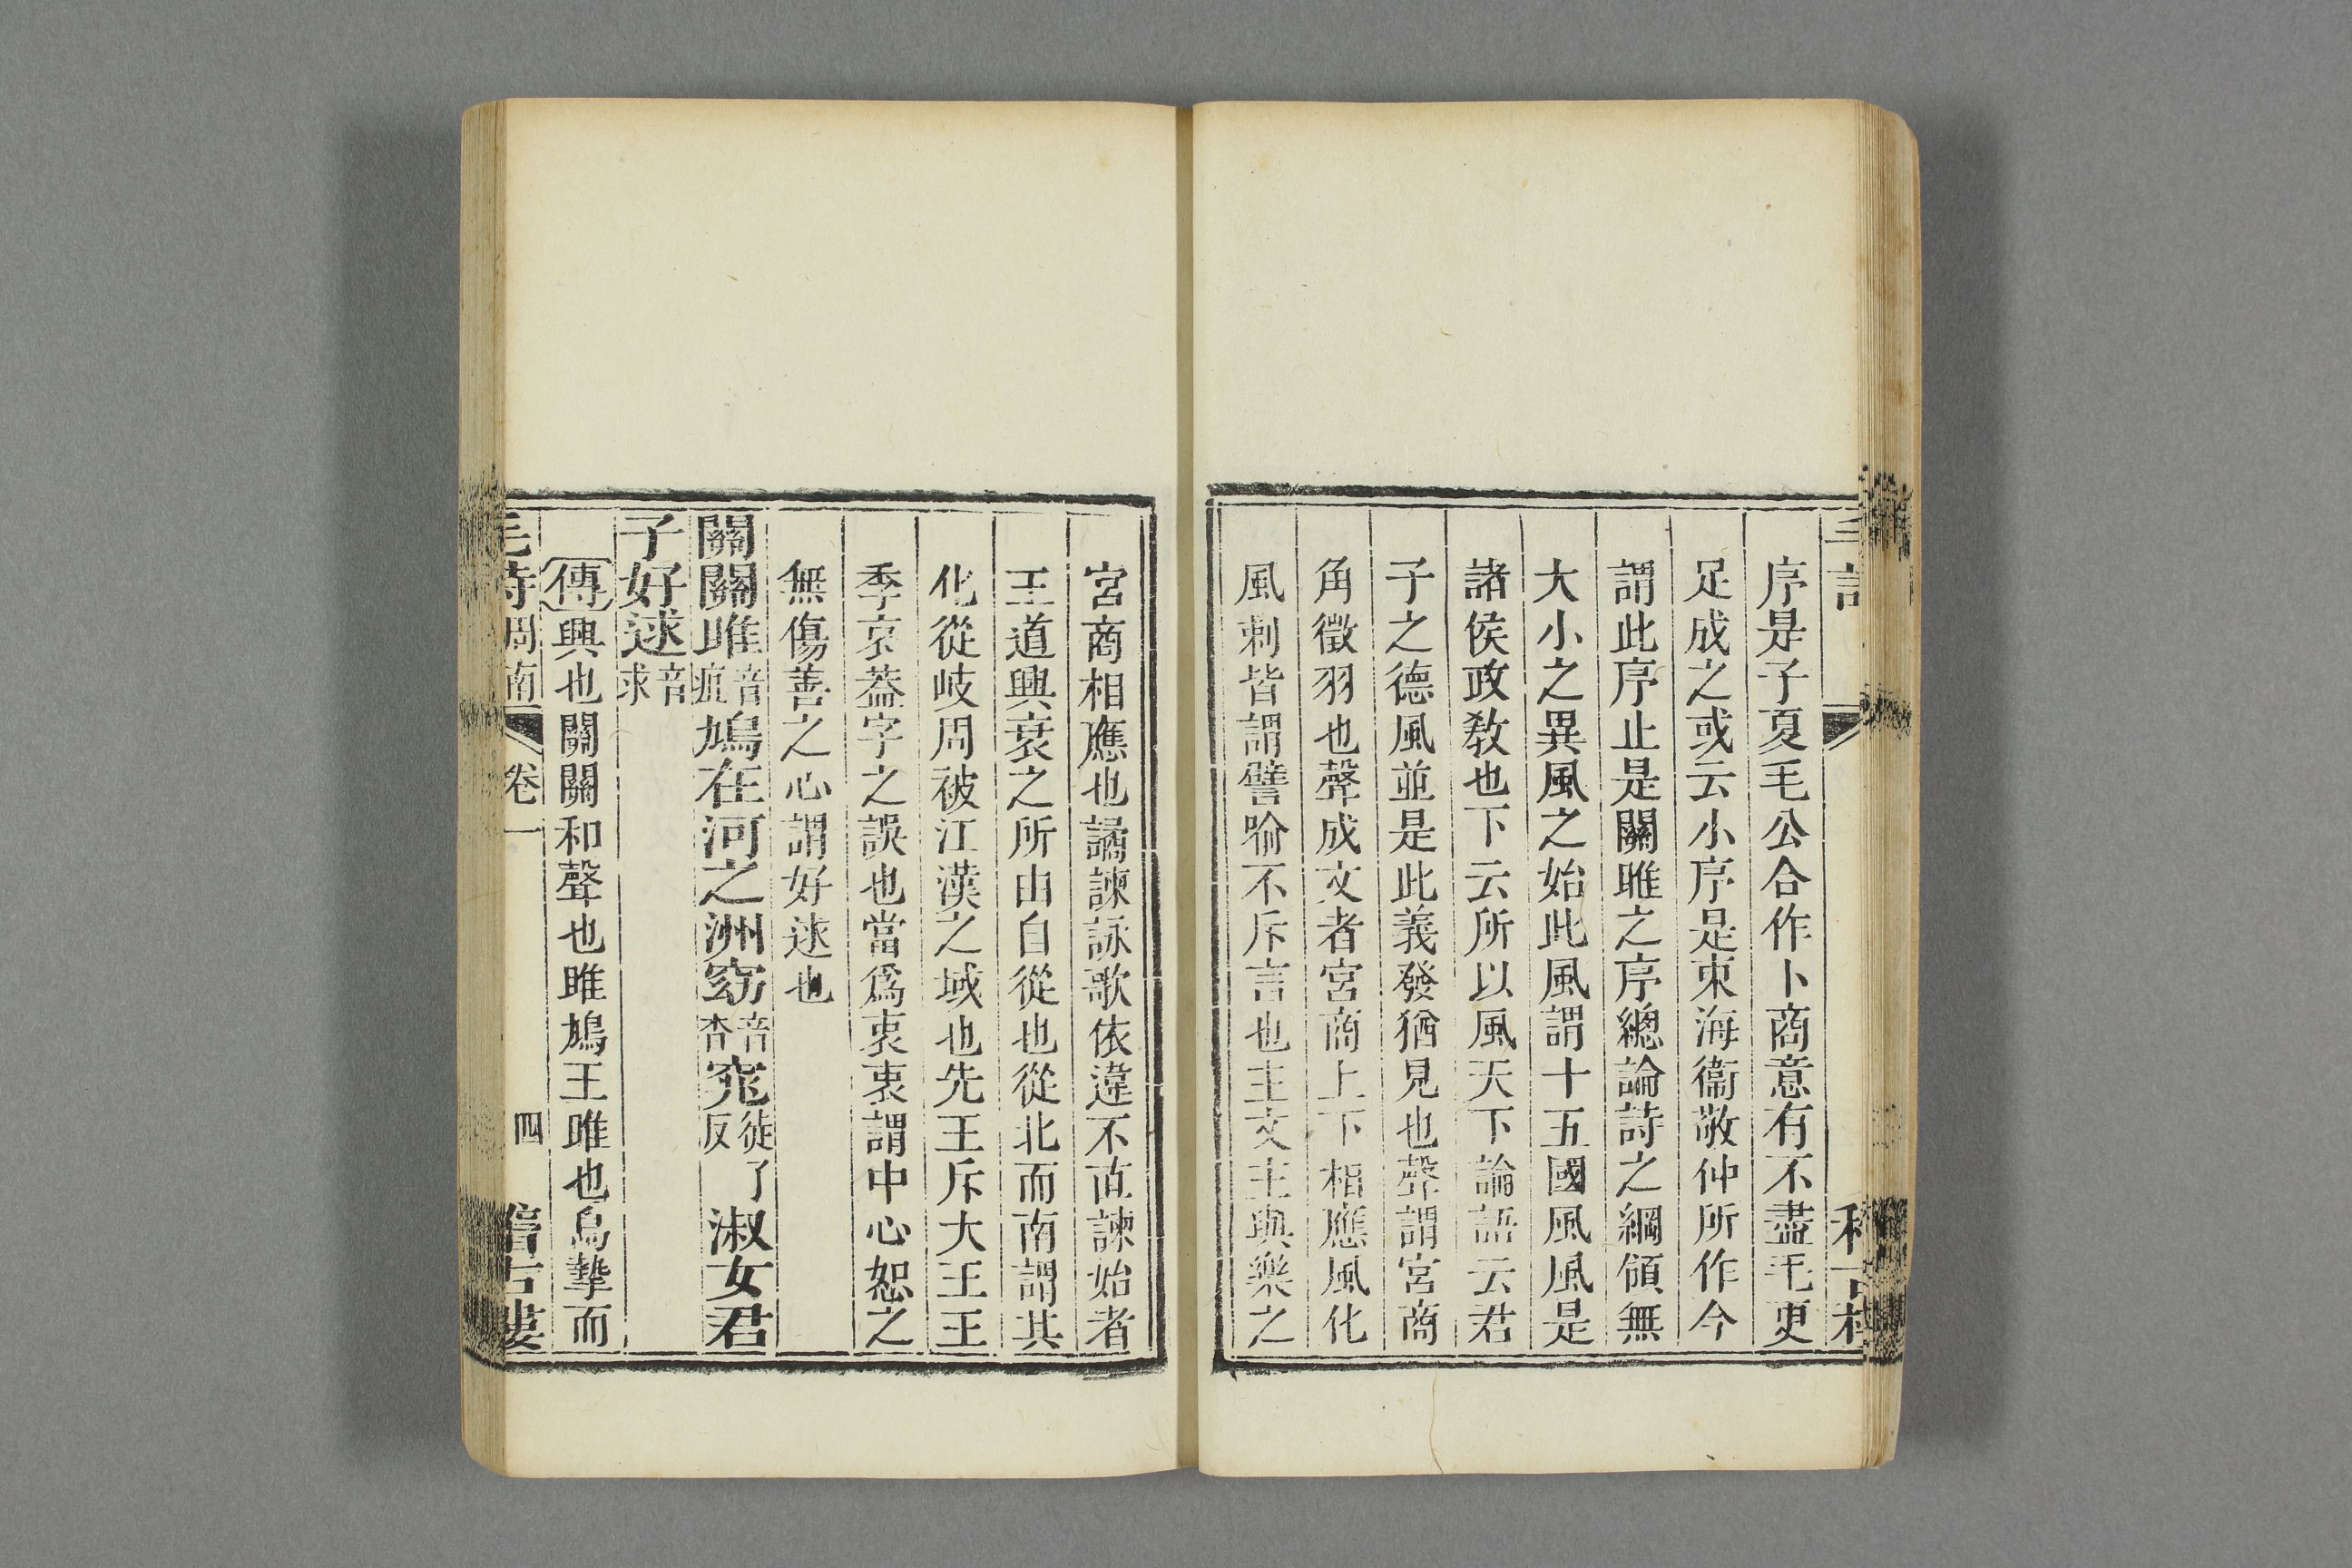 序是子夏毛公合作卜商意有不盡毛更
足成之或云小序是東海衞敬仲所作今
謂此序止是關雎之序總論詩之綱領無
大小之異風之始此風謂十五國風風是
諸侯政敎也下云所以風天下論語云君
子之德風並是此義發猶見也聲謂宮商
角徵羽也聲成文者宮商上下相應風化
風刺皆謂譬喻不斥言也主文主與樂之
宮商相應也譎諫詠歌依違不直諫始者
王道興衰之所由自從也從北而南謂其
化從岐周被江漢之域也先王斥大王王
季哀蓋字之誤也當爲衷衷謂中心恕之
無傷善之心謂好逑也
關關雎音疽鳩在河之洲窈音杳窕徒了反淑女君
子好逑音求
傳興也關關和聲也雎鳩王雎也鳥摯而
毛詩周南 卷一 四 稽古樓